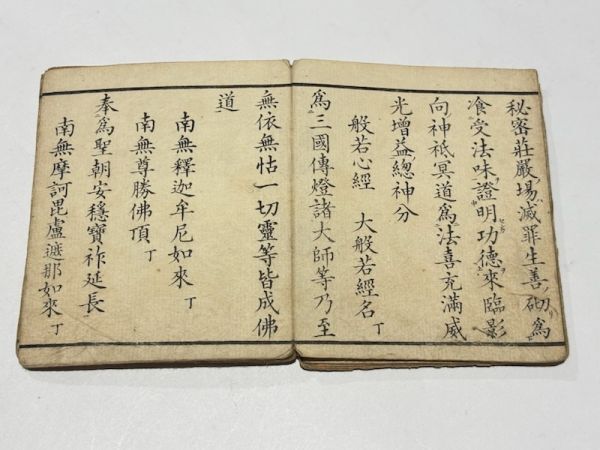 秘密莊嚴場滅罪生善砌爲
飡受法味證明功德來臨影
向神祇冥道爲法喜充滿威
光增益總神分
般若心經 大般若經名 丁
爲三國傳燈諸大師等乃至
無依無怙一切靈等皆成佛
道
南無釋迦牟尼如來 丁
南無尊勝佛頂 丁
奉爲聖朝安穩寶祚延長
南無摩訶毘盧遮那如來 丁